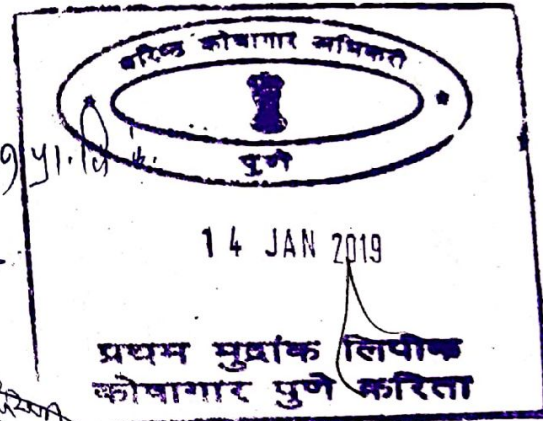 वरिष्ठ कोषागार अधिकारी
पुणे
14 JAN 2019
प्रथम मुद्रांक लिपीक
कोषागार पुणे करिता